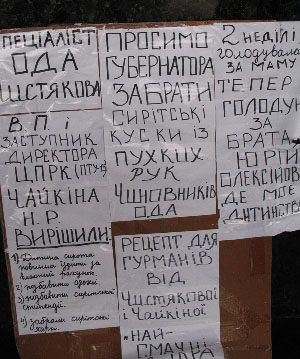 СПЕЦІАЛІСТ
ОДА
ЧИСТЯКОВА
В.П. і
ЗАСТУПНИК
ДИРЕКТОРА
ЦПРК (ПТУ)
ЧАЙКІНА
Н.Р.
ВИРІШИЛИ:
1) Дитина сирота
повинна їздити за
власний рахунок.
2) позбавити одежі
3) позбавити сирітської
стипендії.
4) забрали сирітські
ПРОСИМО
ГУБЕРНАТОРА
ЗАБРАТИ
СИРІТСЬКІ
КУСКИ ІЗ
ПУХКИХ
РУК
ЧИНОВНИКІВ
ОДА
РЕЦЕПТ ДЛЯ
ГУРМАНІВ
ВІД
ЧИСТЯКОВОЇ
і ЧАЙКІНОЇ
"НАЙ-
СМАЧНІ
2 НЕДІЛІ
ГОЛОДУВАЛА
ЗА МАМУ
ТЕПЕР
ГОЛОДУ
ЗА
БРАТА
ЮРІЙ
ОЛЕКСІЙОВ
ДЕ МОЄ
ДИТИНСТВО